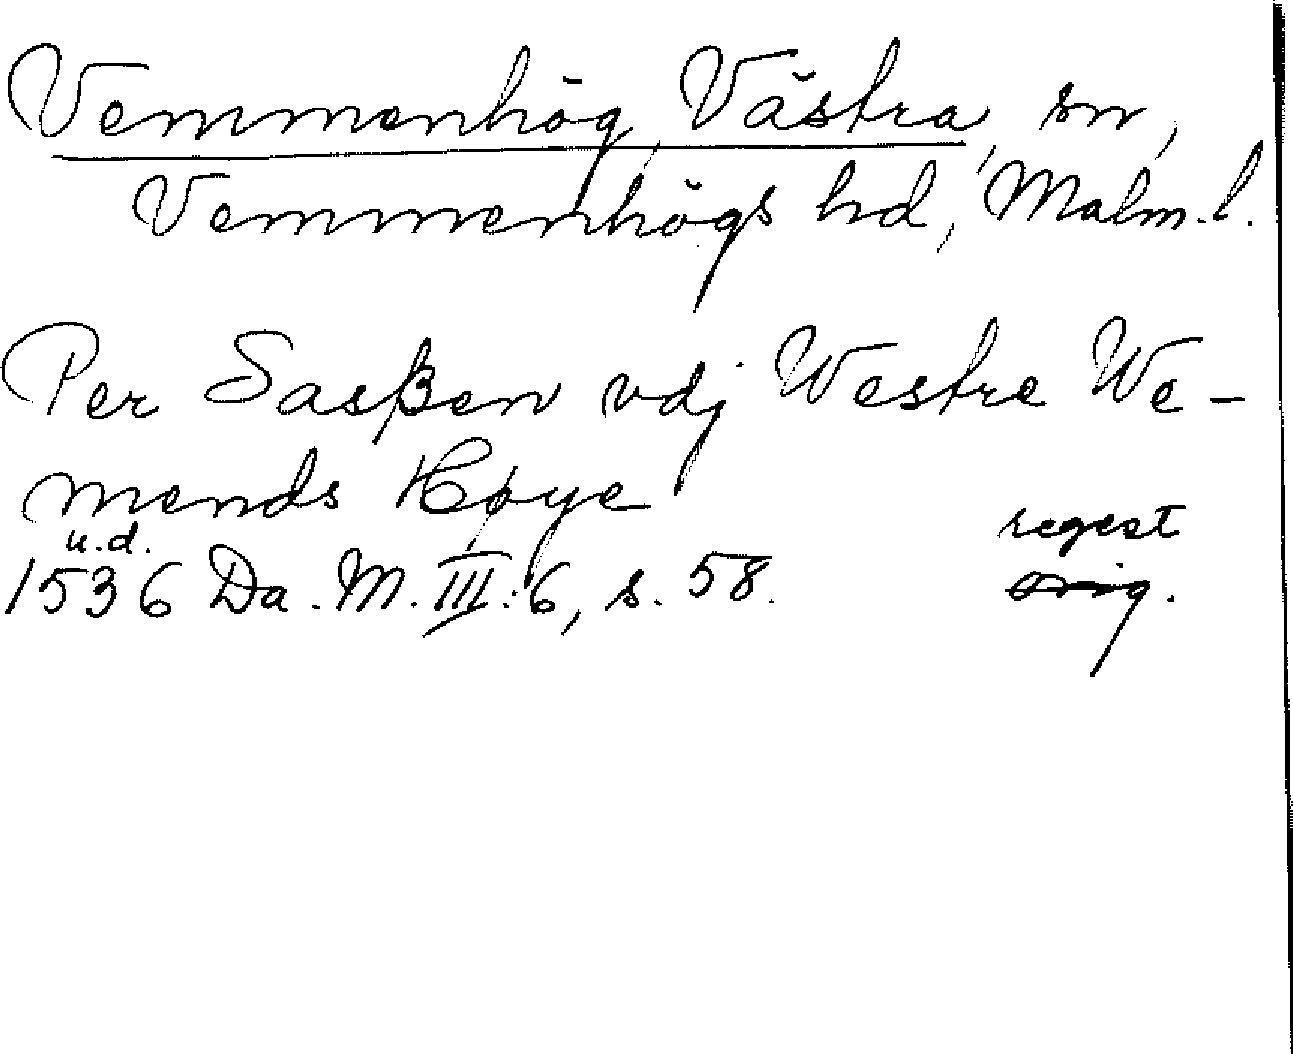 Vemmenhög, Västra, sn,
Vemmenhögs hd, Malm. l.
Per Sasßen vdj Westre We-
mends Høye
u.d. regest
1536 Da. M. III: 6, s. 58. orig.